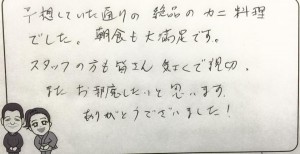 予想していた通りの絶品のカニ料理
でした。朝食も大満足です。
スタッフの方も皆さん気さくで親切。
またお邪魔したいと思います。
ありがとうございました!